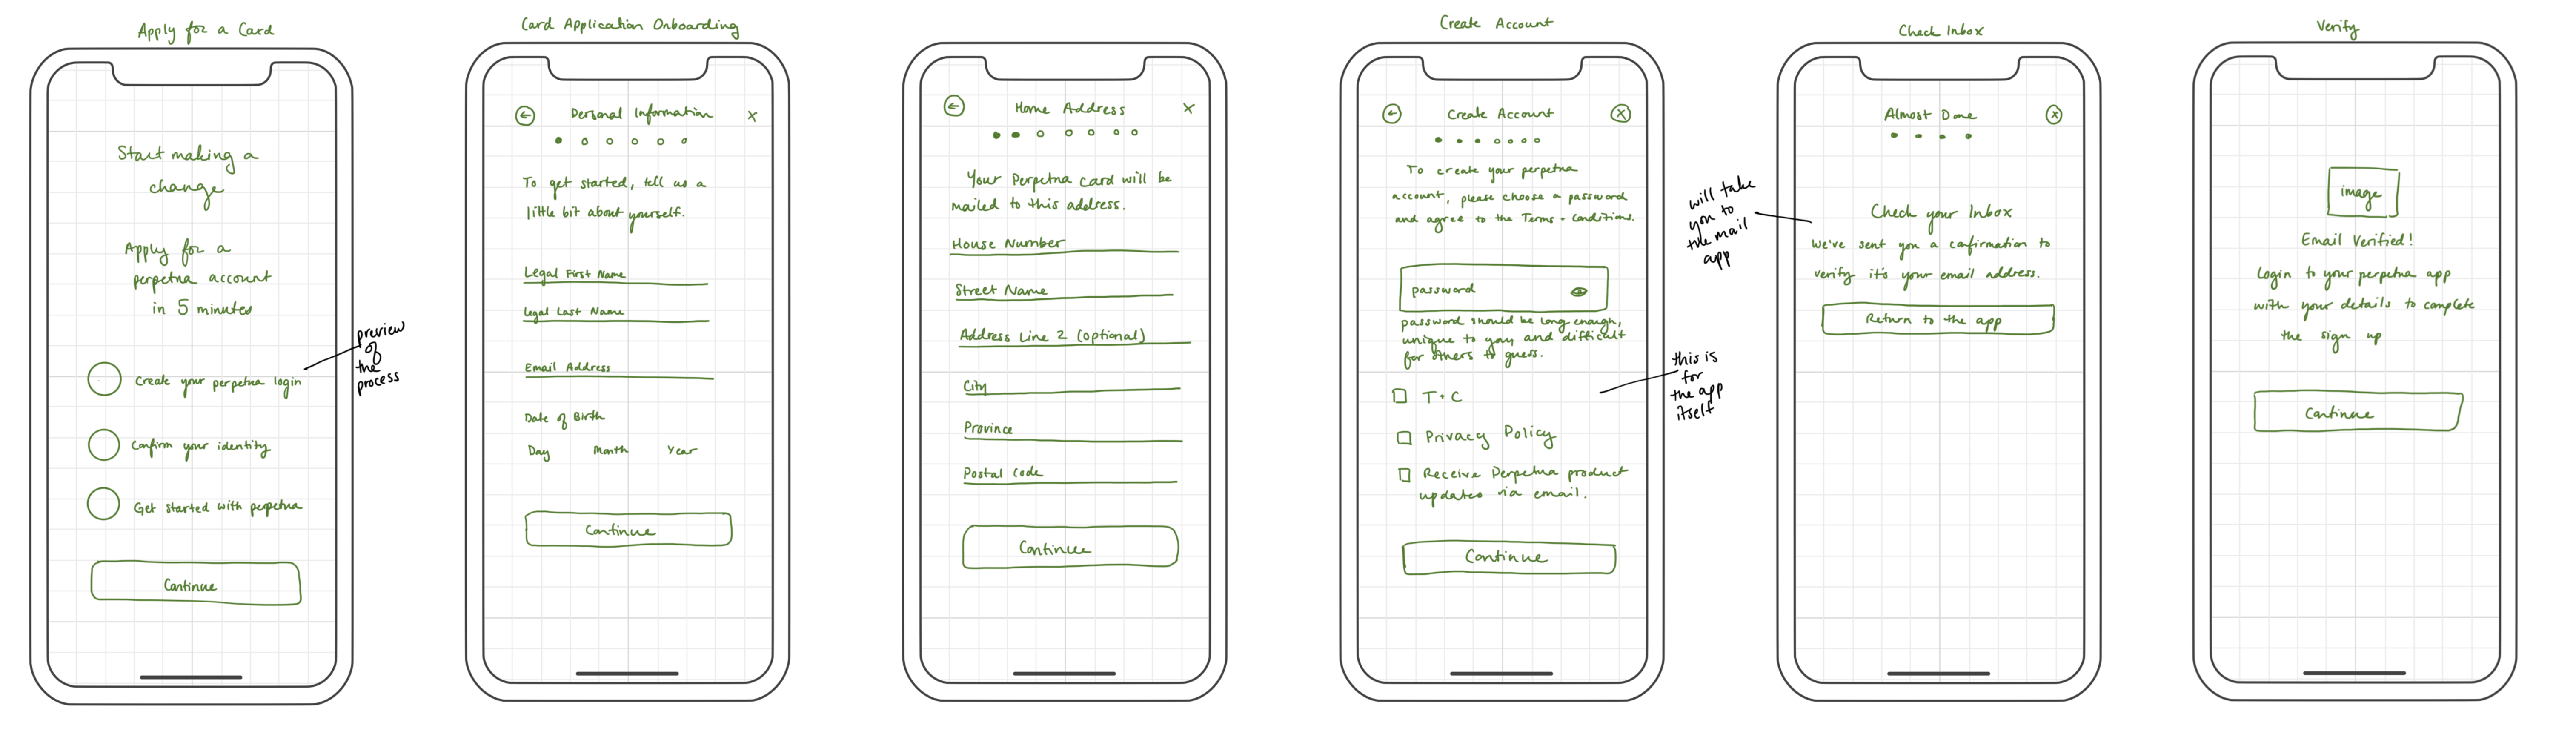 Apply for a Card
Start making a
change
Apply for a
perpetua account
in 5 minutes
Create your perpetua login
Confirm your identity
Get started with perpetua
Continue
preview
of
the
process
Card Application Onboarding
Personal Information
×
To get started, tell us a
little bit about yourself.
Legal First Name
Legal Last Name
Email Address
Date of Birth
Day Month Year
Continue
Home Address
×
Your Perpetua card will be
mailed to this address.
House Number
Street Name
Address Line 2 (optional)
City
Province
Postal Code
Continue
Create Account
Create Account
To create your perpetua
account, please choose a password
and agree to the Terms + Conditions.
password
password should be long enough,
unique to you, and difficult
for others to guess.
T+C
Privacy Policy
Receive Perpetua product
updates via email.
Continue
this is
for
the app
itself
Check Inbox
Almost Done
Check your Inbox
We've sent you a confirmation to
verify it's your email address.
Return to the app
will take
you to
the mail
app
Verify
image
Email Verified!
Login to your perpetua app
with your details to complete
the sign up
Continue